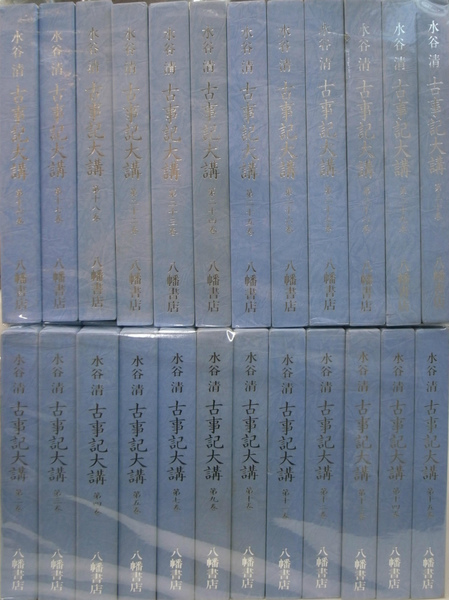 水谷 清 古事記大講 八幡書店
水谷 清 古事記大講 八幡書店
水谷 清 古事記大講 八幡書店
水谷 清 古事記大講 八幡書店
水谷 清 古事記大講 八幡書店
水谷 清 古事記大講 八幡書店
水谷 清 古事記大講 八幡書店
水谷 清 古事記大講 八幡書店
水谷 清 古事記大講 八幡書店
水谷 清 古事記大講 八幡書店
水谷 清 古事記大講 八幡書店
水谷 清 古事記大講
水谷 清 古事記大講 八幡書店
水谷 清 古事記大講 八幡書店
水谷 清 古事記大講 第四巻 八幡書店
水谷 清 古事記大講 第五巻 八幡書店
水谷 清 古事記大講 第七巻 八幡書店
水谷 清 古事記大講 第九巻 八幡書店
水谷 清 古事記大講 第十巻 八幡書店
水谷 清 古事記大講 八幡書店
水谷 清 古事記大講 八幡書店
水谷 清 古事記大講 八幡書店
水谷 清 古事記大講 八幡書店
水谷 清 古事記大講 八幡書店